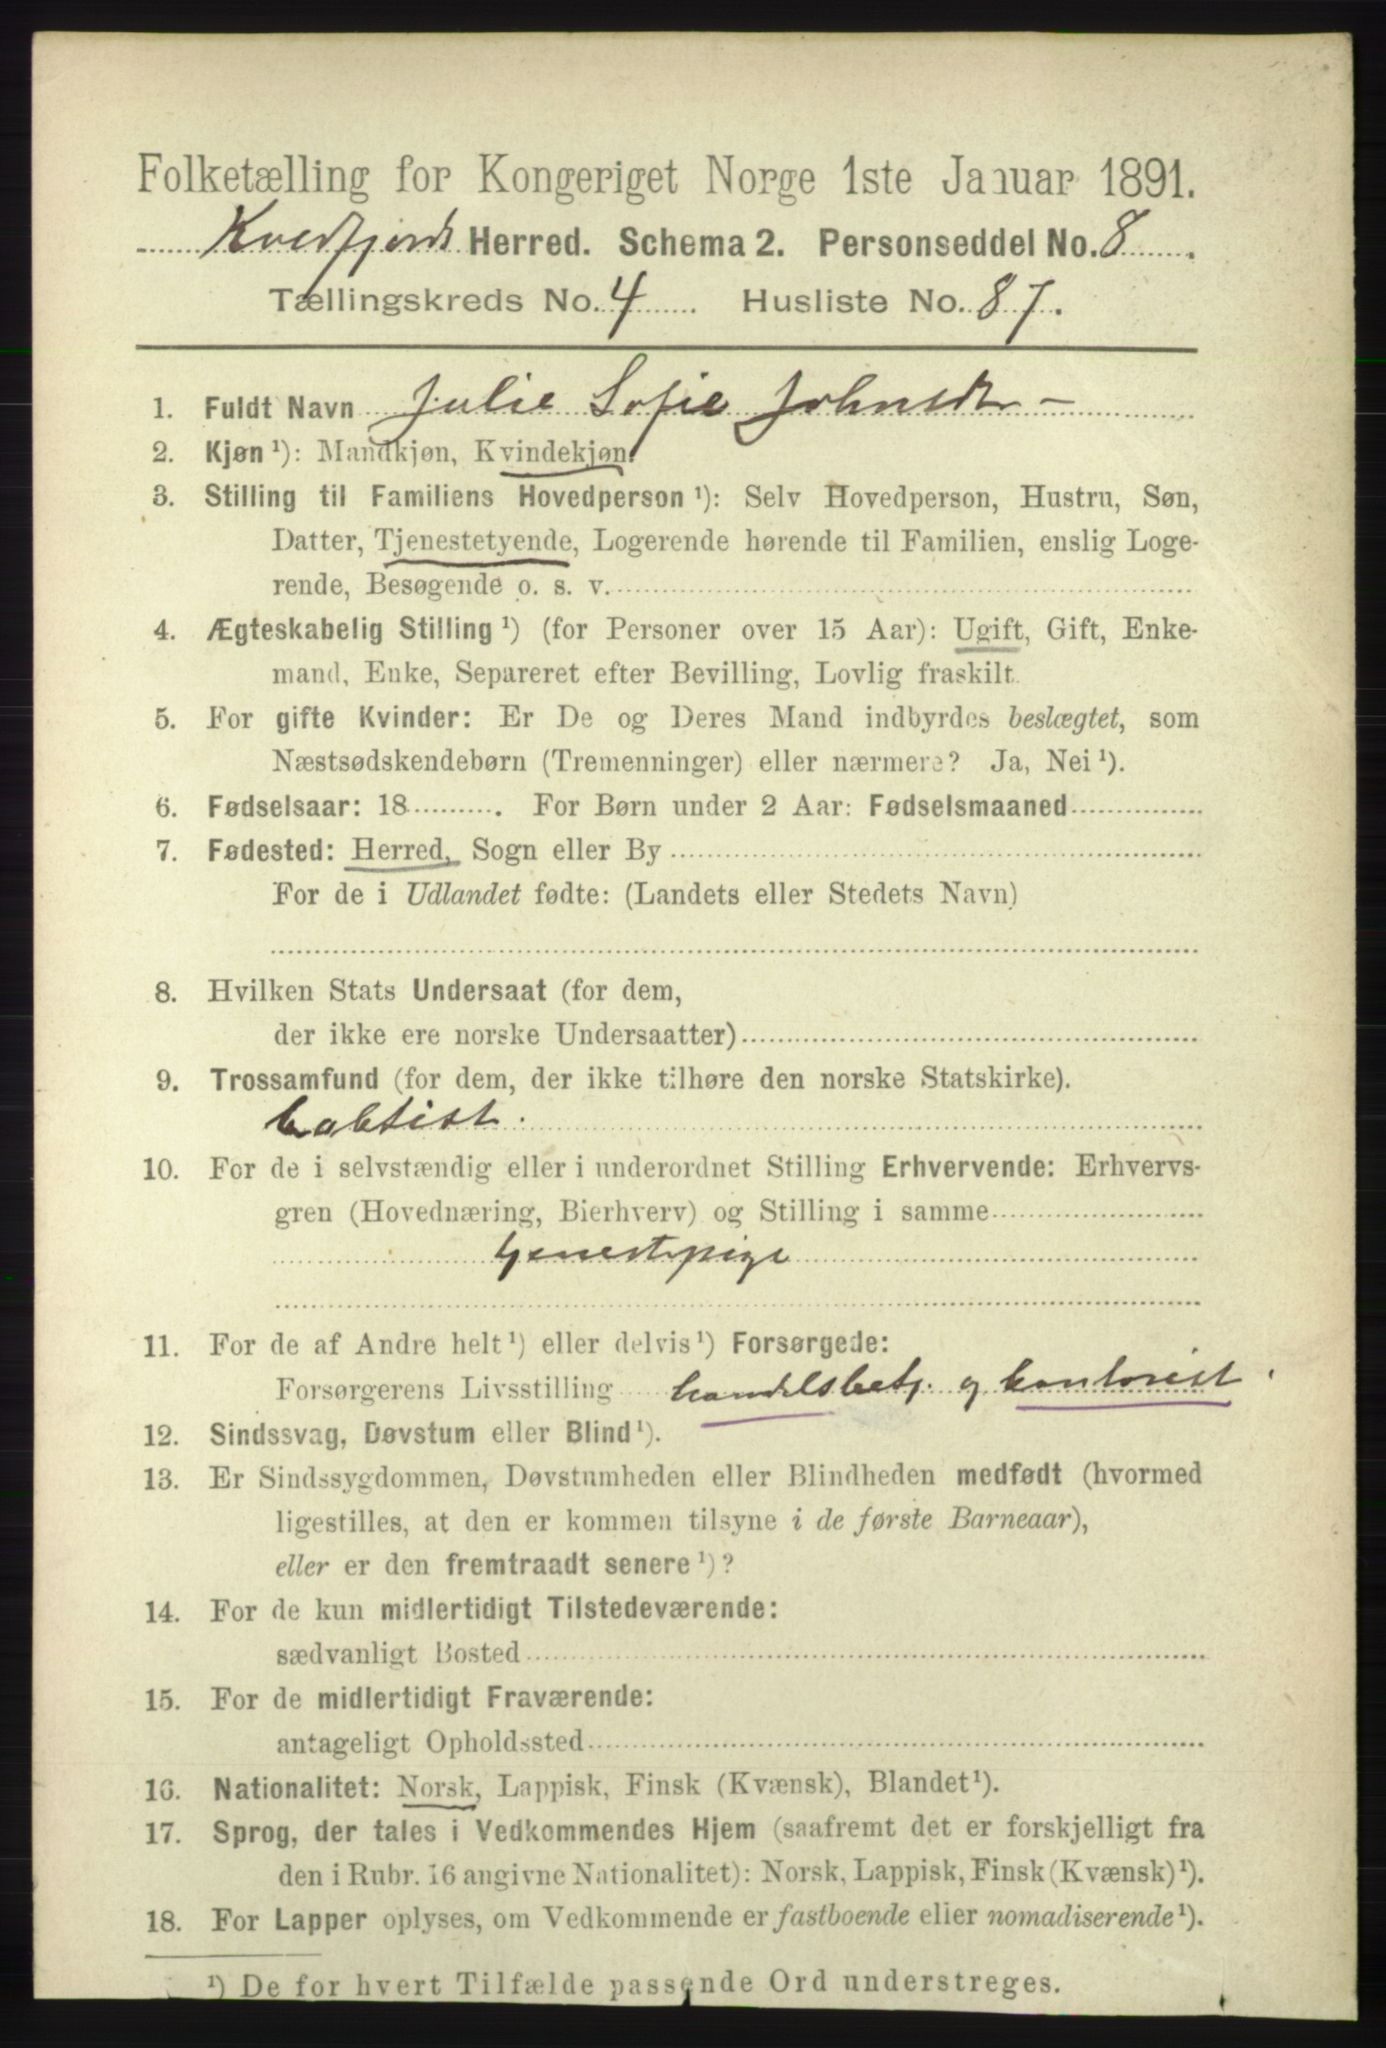 Folketælling for Kongeriget Norge 1ste Januar 1891.
Kvedfjords Herred. Schema 2. Personseddel No. 8.
Tællingskreds No. 4 Husliste No. 87.
1. Fuldt Navn Julie Sofie Johnsdtr —
2. Kjøn ¹): Mandkjøn, Kvindekjøn.
3. Stilling til Familiens Hovedperson ¹): Selv Hovedperson, Hustru, Søn,
Datter, Tjenestetyende, Logerende hørende til Familien, enslig Loge-
rende, Besøgende o. s. v.
4. Ægteskabelig Stilling ¹) (for Personer over 15 Aar): Ugift, Gift, Enke-
mand, Enke, Separeret efter Bevilling, Lovlig fraskilt.
5. For gifte Kvinder: Er De og Deres Mand indbyrdes beslægtet, som
Næstsødskendebørn (Tremenninger) eller nærmere? Ja, Nei ¹).
6. Fødselsaar: 18 . For Børn under 2 Aar: Fødselsmaaned
7. Fødested: Herred, Sogn eller By
For de i Udlandet fødte: (Landets eller Stedets Navn)
8. Hvilken Stats Undersaat (for dem,
der ikke ere norske Undersaatter)
9. Trossamfund (for dem, der ikke tilhøre den norske Statskirke).
babtist.
10. For de i selvstændig eller i underordnet Stilling Erhvervende: Erhvervs-
gren (Hovednæring, Bierhverv) og Stilling i samme
tjenestepige
11. For de af Andre helt ¹) eller delvis ¹) Forsørgede:
Forsørgerens Livsstilling handelsbetj. og kontorist.
12. Sindssvag, Døvstum eller Blind ¹).
13. Er Sindssygdommen, Døvstumheden eller Blindheden medfødt (hvormed
ligestilles, at den er kommen tilsyne i de første Barneaar),
eller er den fremtraadt senere ¹)?
14. For de kun midlertidigt Tilstedeværende:
sædvanligt Bosted
15. For de midlertidigt Fraværende:
antageligt Opholdssted
16. Nationalitet: Norsk, Lappisk, Finsk (Kvænsk), Blandet ¹).
17. Sprog, der tales i Vedkommendes Hjem (saafremt det er forskjelligt fra
den i Rubr. 16 angivne Nationalitet): Norsk, Lappisk, Finsk (Kvænsk) ¹).
18. For Lapper oplyses, om Vedkommende er fastboende eller nomadiserende ¹).
¹) De for hvert Tilfælde passende Ord understreges.